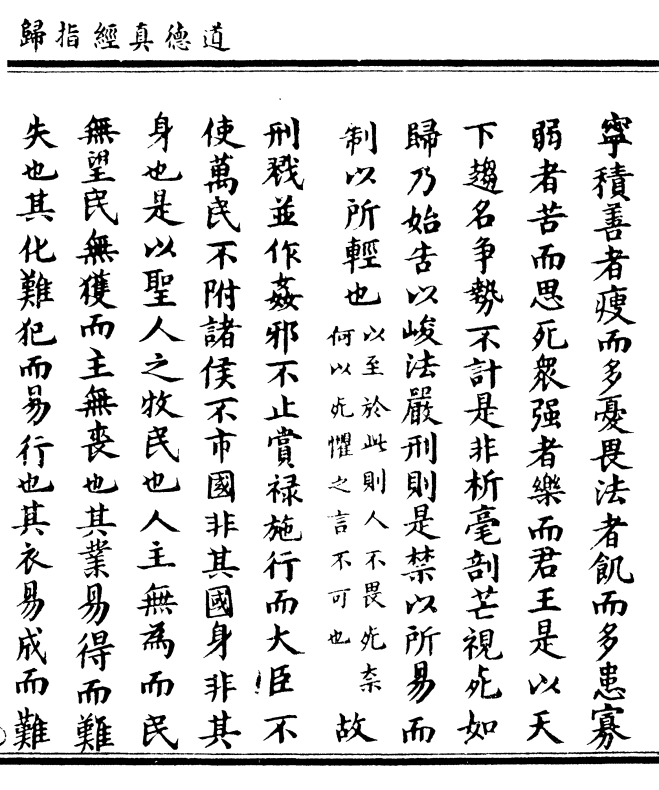 道德真經指歸
寧積善者瘦而多憂畏法者飢而多患寡
弱者苦而思死衆强者樂而君王是以天
下趨名争勢不計是非析毫剖芒視死如
歸乃始告以峻法嚴刑則是禁以所易而
制以所輕也以至於此則人不畏死柰何以死懼之言不可也故
刑戮並作姦邪不止賞禄施行而大臣不
使萬民不附諸侯不市國非其國身非其
身也是以聖人之牧民也人主無為而民
無望民無獲而主無喪也其業易得而難
失也其化難犯而易行也其衣易成而難